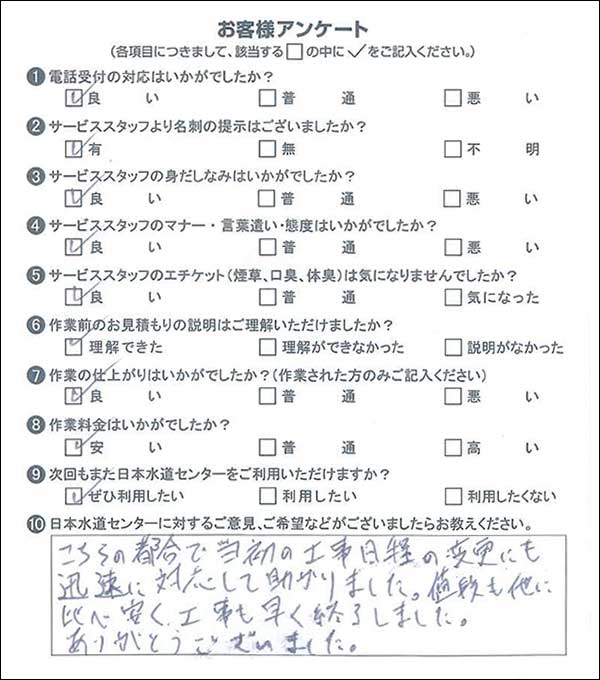 お客様アンケート
(各項目につきまして、該当する□の中に✓をご記入ください。)
❶電話受付の対応はいかがでしたか?
☑良い □普通 □悪い
❷サービススタッフより名刺の提示はございましたか?
☑有 □無 □不明
❸サービススタッフの身だしなみはいかがでしたか?
☑良い □普通 □悪い
❹サービススタッフのマナー・言葉遣い・態度はいかがでしたか?
☑良い □普通 □悪い
❺サービススタッフのエチケット(煙草、口臭、体臭)は気になりませんでしたか?
☑良い □普通 □気になった
❻作業前のお見積もりの説明はご理解いただけましたか?
☑理解できた □理解ができなかった □説明がなかった
❼作業の仕上がりはいかがでしたか?(作業された方のみご記入ください)
☑良い □普通 □悪い
❽作業料金はいかがでしたか?
☑安い □普通 □高い
❾次回もまた日本水道センターをご利用いただけますか?
☑ぜひ利用したい □利用したい □利用したくない
❿日本水道センターに対するご意見、ご希望などがございましたらお教えください。
こちらの都合で当初の工事日程の変更にも
迅速に対応して助かりました。値段も他に
比べ安く、工事も早く終了しました。
ありがとうございました。